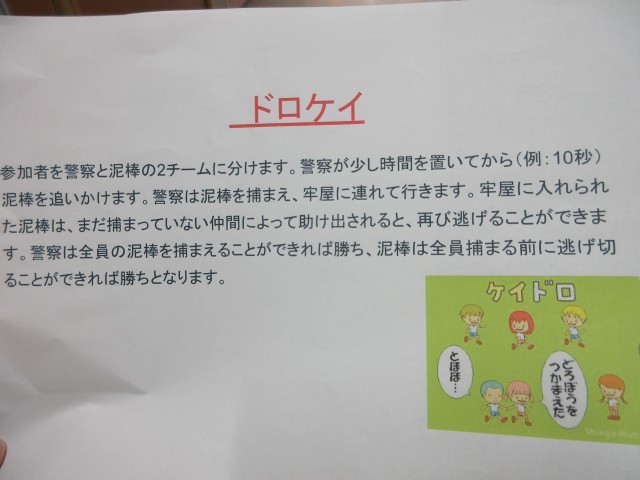 ドロケイ
参加者を警察と泥棒の2チームに分けます。警察が少し時間を置いてから（例：10秒）
泥棒を追いかけます。警察は泥棒を捕まえ、牢屋に連れて行きます。牢屋に入れられ
た泥棒は、まだ捕まっていない仲間によって助け出されると、再び逃げることができま
す。警察は全員の泥棒を捕まえることができれば勝ち、泥棒は全員捕まる前に逃げ切
ることができれば勝ちとなります。
ケイドロ
とほほ…
どろぼうを
つかまえた